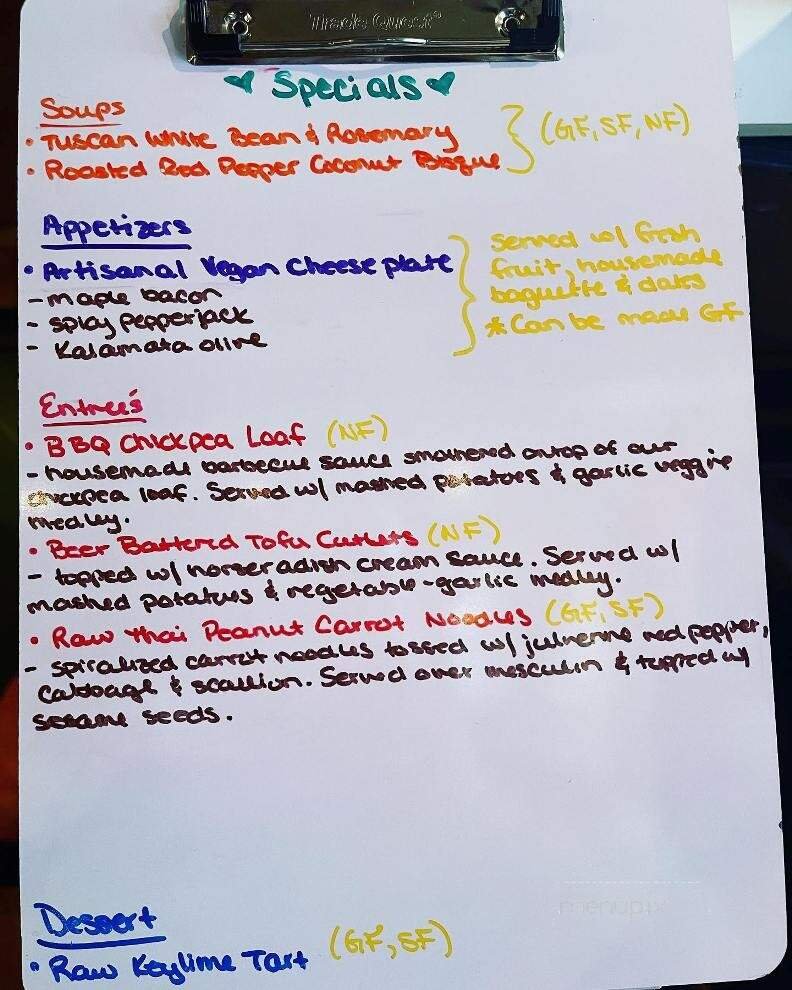 Trade Quest
Specials
Soups
• Tuscan White Bean & Rosemary
• Roasted Red Pepper Coconut Bisque
(GF, SF, NF)
Appetizers
• Artisanal Vegan Cheese plate
- maple bacon
- spicy pepperjack
- Kalamata olive
served w/ fresh
fruit, housemade
baguette & dates
* Can be made GF
Entrees
• BBQ Chickpea Loaf (NF)
- housemade barbecue sauce smothered ontop of our
chickpea loaf. Served w/ mashed potatoes & garlic veggie
medley.
• Beer Battered Tofu Cutlets (NF)
- topped w/ horseradish cream sauce. Served w/
mashed potatoes & vegetable-garlic medley.
• Raw Thai Peanut Carrot Noodles (GF, SF)
- spiralized carrot noodles tossed w/ julienne red pepper,
Cabbage & scallion. Served over mesculin & topped w/
sesame seeds.
menupix
Dessert
• Raw Keylime Tart (GF, SF)